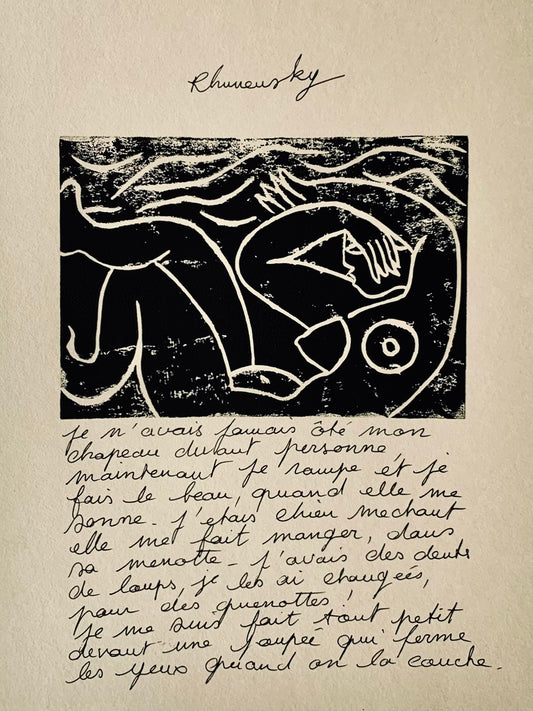 Rhuneusky
je n'avais jamais ôté mon
chapeau durant personne,
maintenant je rampe et je
fais le beau, quand elle me
sonne - j'étais chien mechant
elle me fait manger, dans
sa menotte - j'avais des dents
de loups, je les ai changées,
pour des quenottes !
je me suis fait tout petit
devant une poupée qui ferme
les yeux quand on la couche.